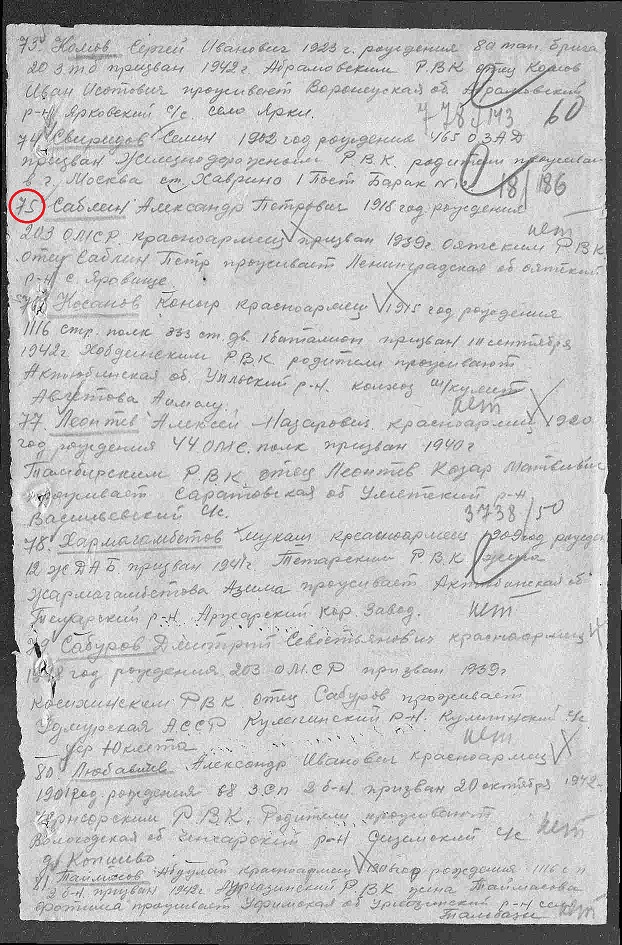 73. Комов Сергей Иванович 1923 г. рождения 80 тан. брига
20 3 тб призван 1942г Абрамовским Р.В.К отец Комов
Иван проживает Воронежская об Абрамовский
р-н Ярковский с/с. село Ярки.
778/143 60
74 Свиридов Семен 1902 год рождения 465 О.З.А.Д
призван Железнодорожном Р.В.К. родители проживаю
в г. Москва ст. Ховрино 1 Пост Барак №
18/186
75 Саблин Александр Петрович 1918 год рождения
нет
203 О.М.С.Р. красноармеец призван 1939г Оятским Р.В.К
отец Саблин Петр проживает Ленинградская об оятский
р-н с. Яровище
76 Косанов Коныр красноармеец 1915 год рождения
1116 стр. полк 333 ст. дв. 1 баталион призван 10 сентября
1942г Хобдинским Р.В.К родители проживают
Актюбинская об. Уильский р-н. колхоз
Авгетова Аомолу.
нет
77. Леонтев Алексей Назарович красноармеец 1920
год рождения 44 ОМС. полк призван 1940г
Р.В.К отец Леонтев
проживает Саратовская об р-н
Васильевский с/с.
3738/50
78. Хармагамбетов Мукаш красноармеец 1909 год рожден
12 Ж Д А Б призван 1941г. Р.В.К жена
Жармагамбетова Азима проживает Актюбинская об
р-н. кор. Завод.
нет
79 Сабуров Дмитрий Севостьянович красноармеец
год рождения 203 О.М.С.Р призван 1939г
Р.В.К отец Сабуров проживает
Удмурская АССР Кулигинский р-н. Кулигинский с/с
дер Юклета
нет
80. Любавлев Александр Иванович красноармеец
год рождения 68 З.СП 2 б-н. призван 20 октября 1942.
Р.В.К. Родители проживают
Вологодская об р-н с/с
нет
д. Копшево
81 Таймасов Абдулай красноармеец год рождения 1116 с п
2 б-н. призван 1942г Р.В.К жена Таймасова
проживает Уфимская об р-н село
нет
Толбазы